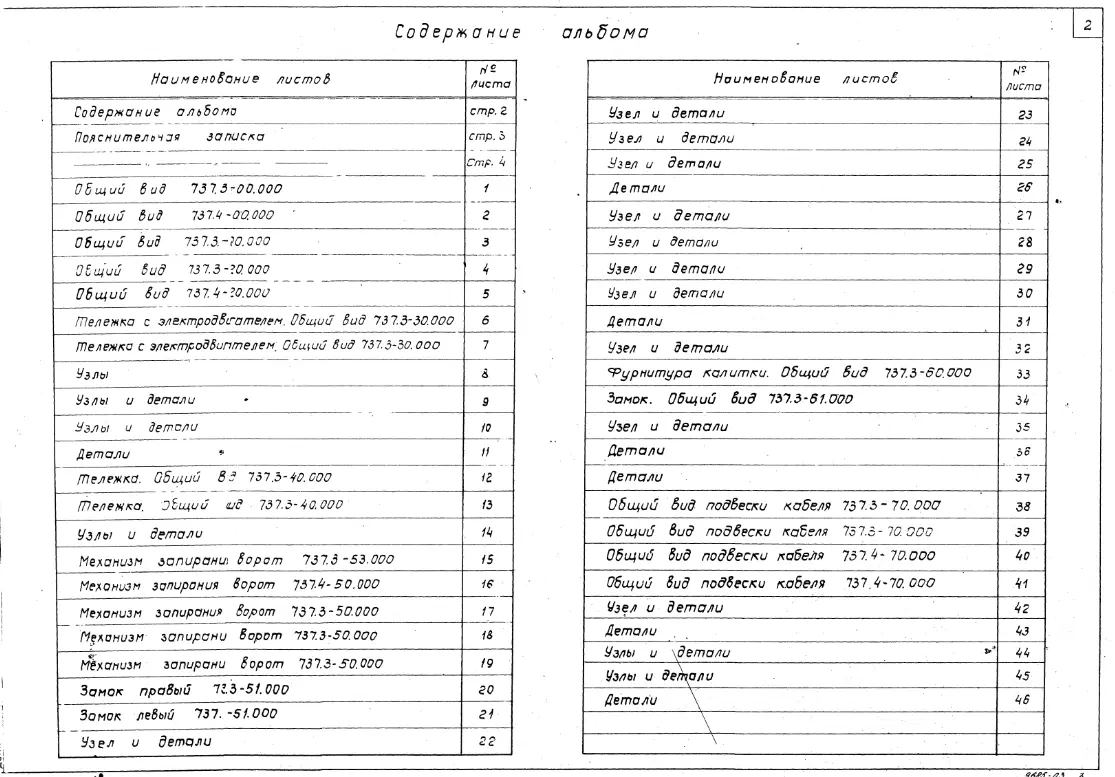 Содержание альбома
2
Наименование листов № листа
Содержание альбома стр. 2
Пояснительная записка стр. 3
—— " —— —— стр. 4
Общий вид 737.3-00.000 1
Общий вид 737.4-00.000 2
Общий вид 737.3.-20.000 3
Общий вид 737.3-20.000 4
Общий вид 737.4-20.000 5
Тележка с электродвигателем. Общий вид 737.3-30.000 6
Тележка с электродвигателем. Общий вид 737.3-30.000 7
Узлы 8
Узлы и детали 9
Узлы и детали 10
Детали 11
Тележка. Общий вид 737.3-40.000 12
Тележка. Общий вид 737.3-40.000 13
Узлы и детали 14
Механизм запирани ворот 737.3-53.000 15
Механизм запирания ворот 737.4-50.000 16
Механизм запирания ворот 737.3-50.000 17
Механизм запирани ворот 737.3-50.000 18
Механизм запирани ворот 737.3-50.000 19
Замок правый 73.3-51.000 20
Замок левый 737. -51.000 21
Узел и детали 22
Наименование листов № листа
Узел и детали 23
Узел и детали 24
Узел и детали 25
Детали 26
Узел и детали 27
Узел и детали 28
Узел и детали 29
Узел и детали 30
Детали 31
Узел и детали 32
Фурнитура калитки. Общий вид 737.3-60.000 33
Замок. Общий вид 737.3-61.000 34
Узел и детали 35
Детали 36
Детали 37
Общий вид подвески кабеля 737.3-70.000 38
Общий вид подвески кабеля 737.3-70.000 39
Общий вид подвески кабеля 737.4-70.000 40
Общий вид подвески кабеля 737.4-70.000 41
Узел и детали 42
Детали 43
Узлы и детали 44
Узлы и детали 45
Детали 46